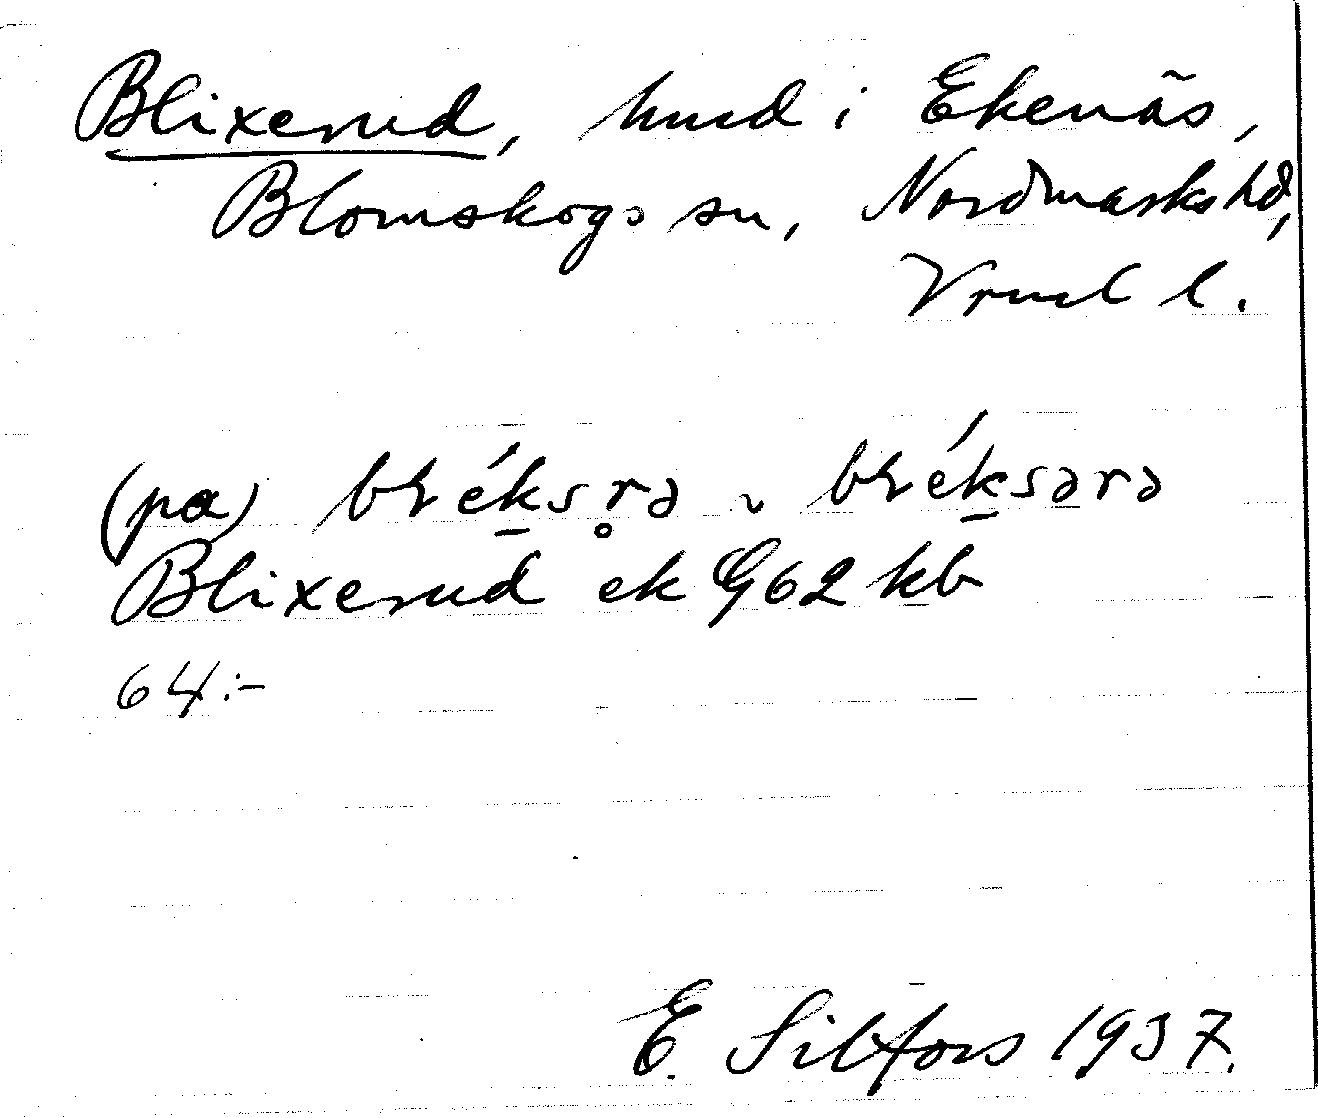 Blixerud, hmd i Ekenäs,
Blomskogs sn, Nordmarks hd,
Vrml l.
(pa) bɽéksr̥ə ~ bɽéksərə
Blixerud ek G62 kb
64:-
E. Silfors 1937.